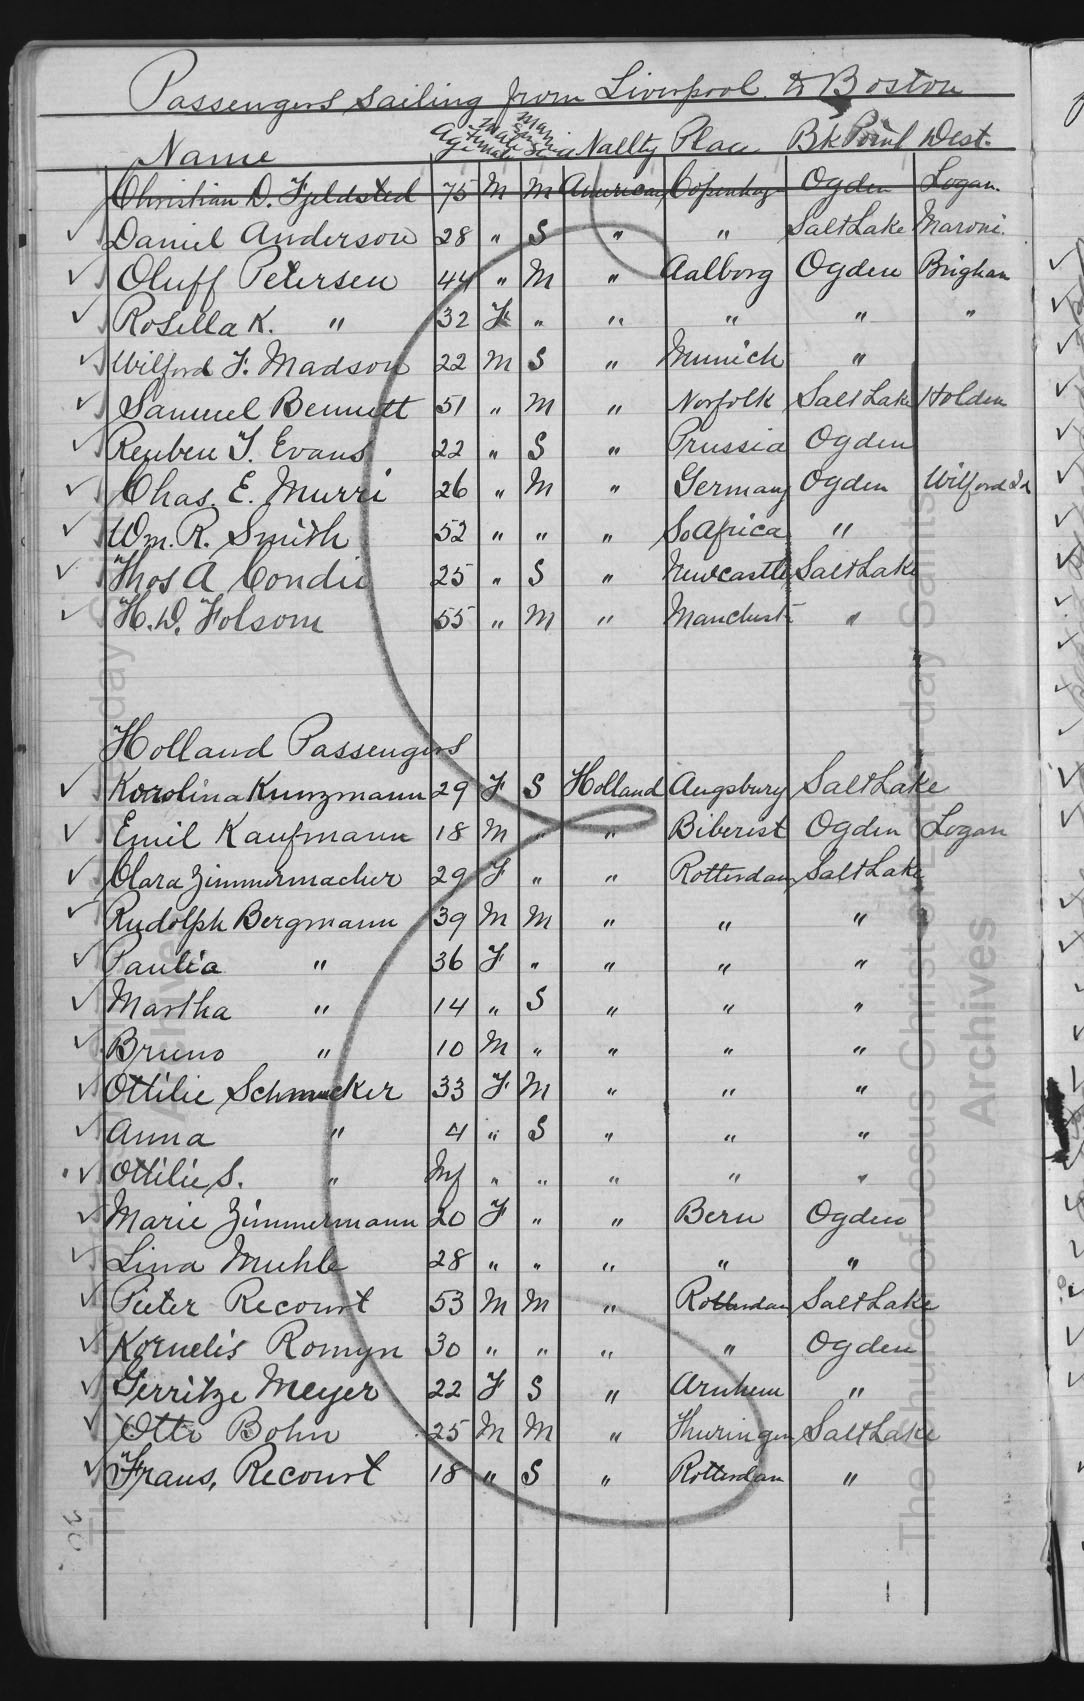 Passengers sailing from Liverpool to Boston
Name Age Male Female Mar Sin Natlty Place Bk Point Dest.
Christian D. Fjeldsted 75 M M American Copenhag Ogden Logan.
Daniel Anderson 28 " S " " Salt Lake Maroni
Oluff Petersen 44 " M " Aalborg Ogden Brigham
Rosella K. " 32 F " " " " "
Wilford F. Madson 22 M S " Munich "
Samuel Bennett 51 " M " Norfolk Salt Lake Holden
Reuben T. Evans 22 " S " Prussia Ogden
Chas. E. Murri 26 " M " Germany Ogden Wilford Id
Wm. R. Smith 52 " " " So Africa "
Thos A Condie 25 " S " Newcastle Salt Lake
H. D. Folsom 55 " M " Manchest "
Holland Passengers
Karolina Kunzmann 29 F S Holland Augsburg Salt Lake
Emil Kaufmann 18 M " " Biberist Ogden Logan
Clara Zimmermacher 29 F " " Rotterdam Salt Lake
Rudolph Bergmann 39 M M " " "
Paulia " 36 F " " " "
Martha " 14 " S " " "
Bruno " 10 M " " " "
Ottilie Schmucker 33 F M " " "
Anna " 4 " S " " "
Ottilie S. " Inf " " " " "
Marie Zimmermann 20 F " " Bern Ogden
Lina Muhle 28 " " " " "
Pieter Recourt 53 M M " Rotterdam Salt Lake
Kornelis Romyn 30 " " " " Ogden
Gerritze Meyer 22 F S " Arnhem "
Otto Bohn 25 M M " Thuringen Salt Lake
Frans, Recourt 18 " S " Rotterdam "
The Church of Jesus Christ of Latter-day Saints
Archives